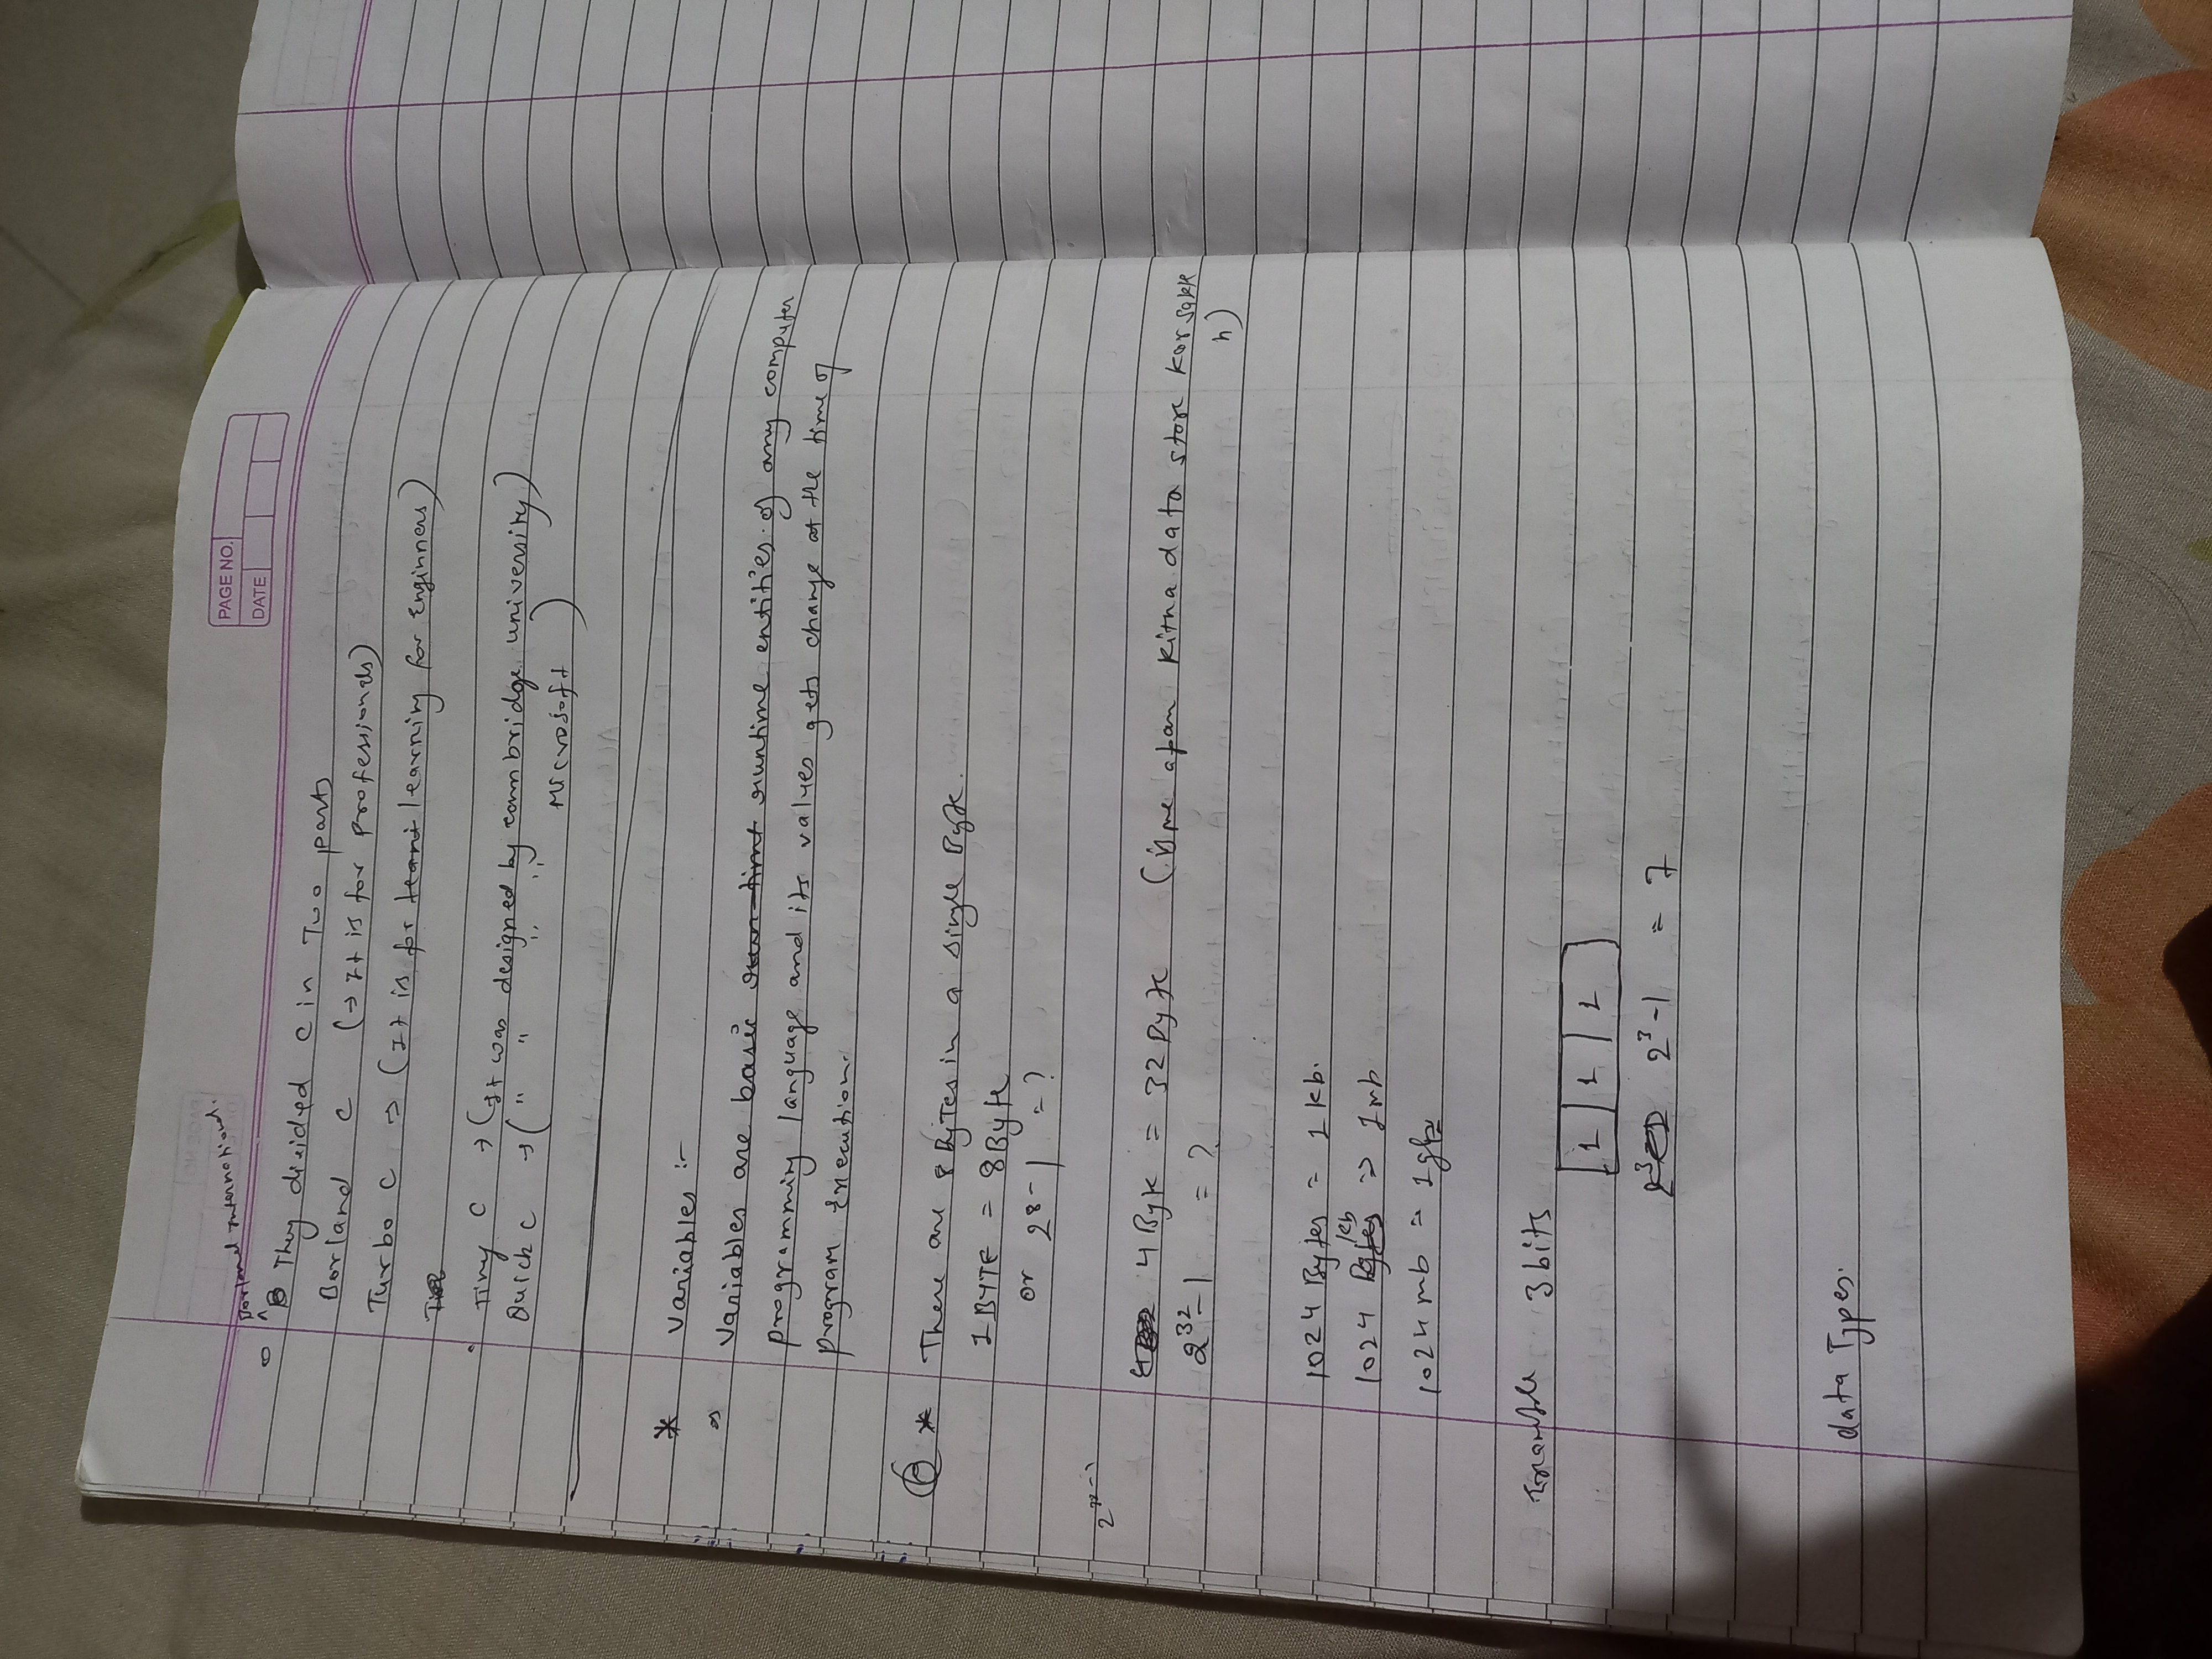 PAGE NO.
DATE
Borland International.
They divided C in Two parts
Borland C (→ It is for professionals)
Turbo C → (It is for learning for Enginners)
Tiny C → (It was designed by cambridge university)
Quick C → ( " " " " Microsoft )
* Variables :-
Variables are basic runtime entities of any computer
programming language and its values gets change at the time of
program Execution.
* There are 8 Bytes in a single Byte.
1 BYTE = 8Byte
or 2^8-1 = ?
4 Byte = 32 Byte (isme apan kitna data store kar sakte
h)
2^32-1 = ?
1024 Bytes = 1 kb.
1024 kb => 1mb
1024 mb = 1gb
Example 3 bits
1 1 1
2^3-1 = 7
data Types.